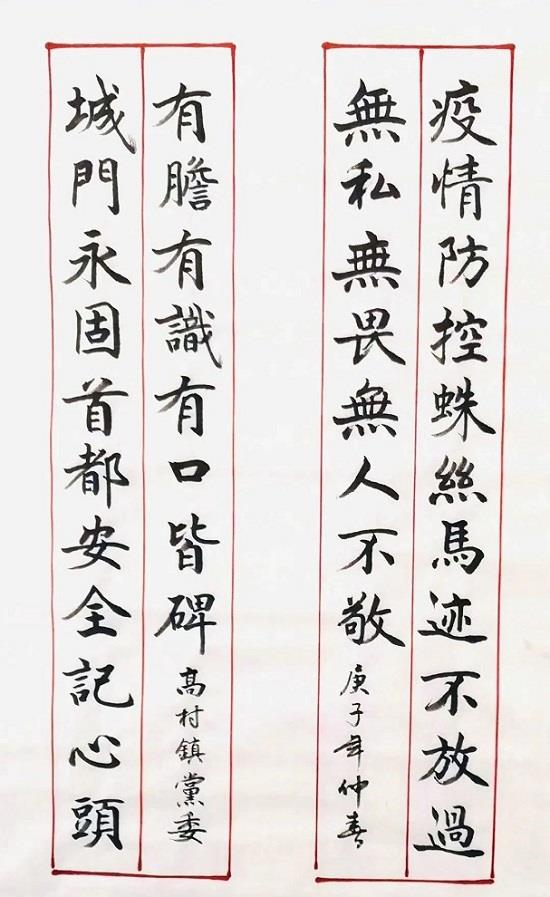 疫情防控蛛絲馬迹不放過
無私無畏無人不敬
庚子年仲春
城門永固首都安全記心頭
有膽有識有口皆碑
高村鎮黨委